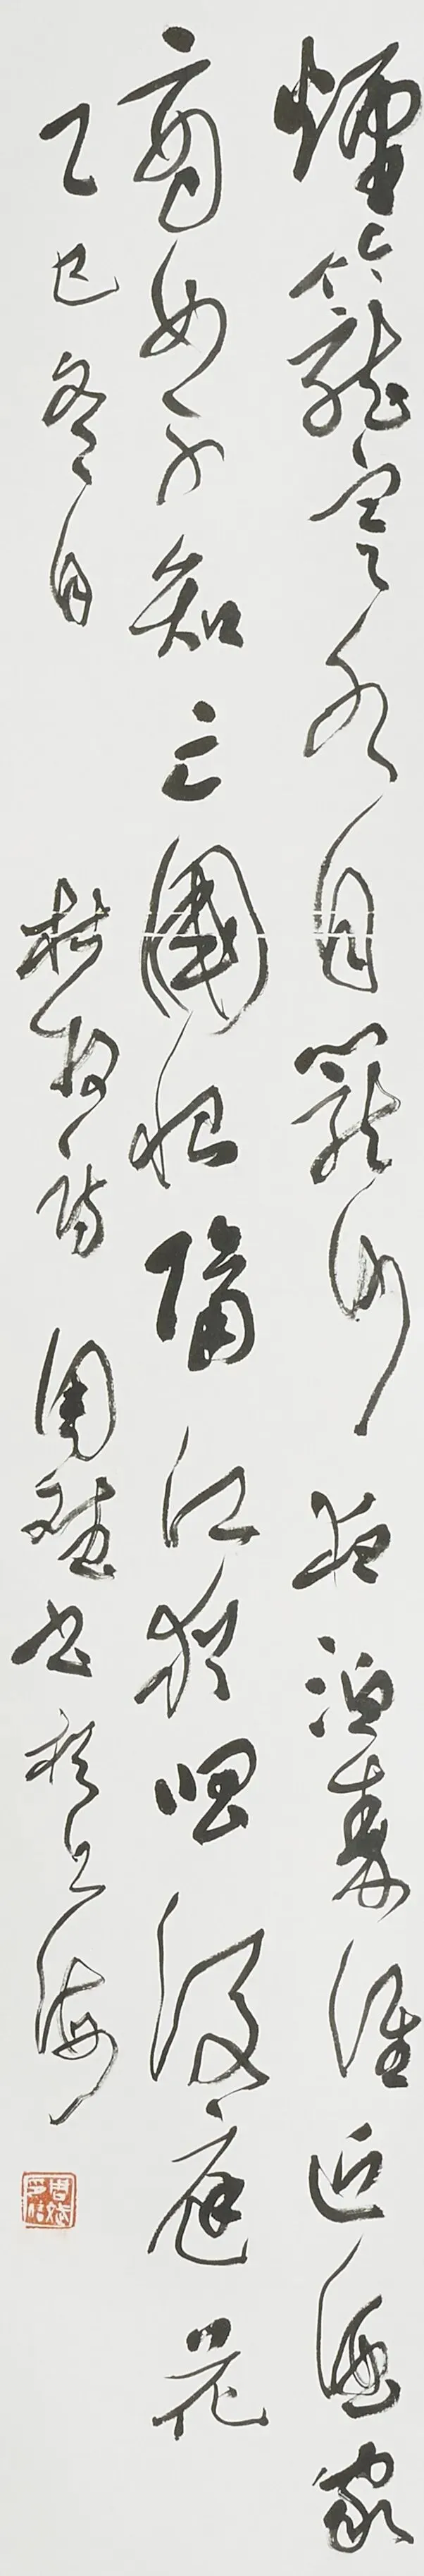 煙籠寒水月籠沙夜泊秦淮近酒家
商女不知亡國恨隔江猶唱後庭花
乙巳冬月 杜牧詩 周斌書於上海
周斌印信